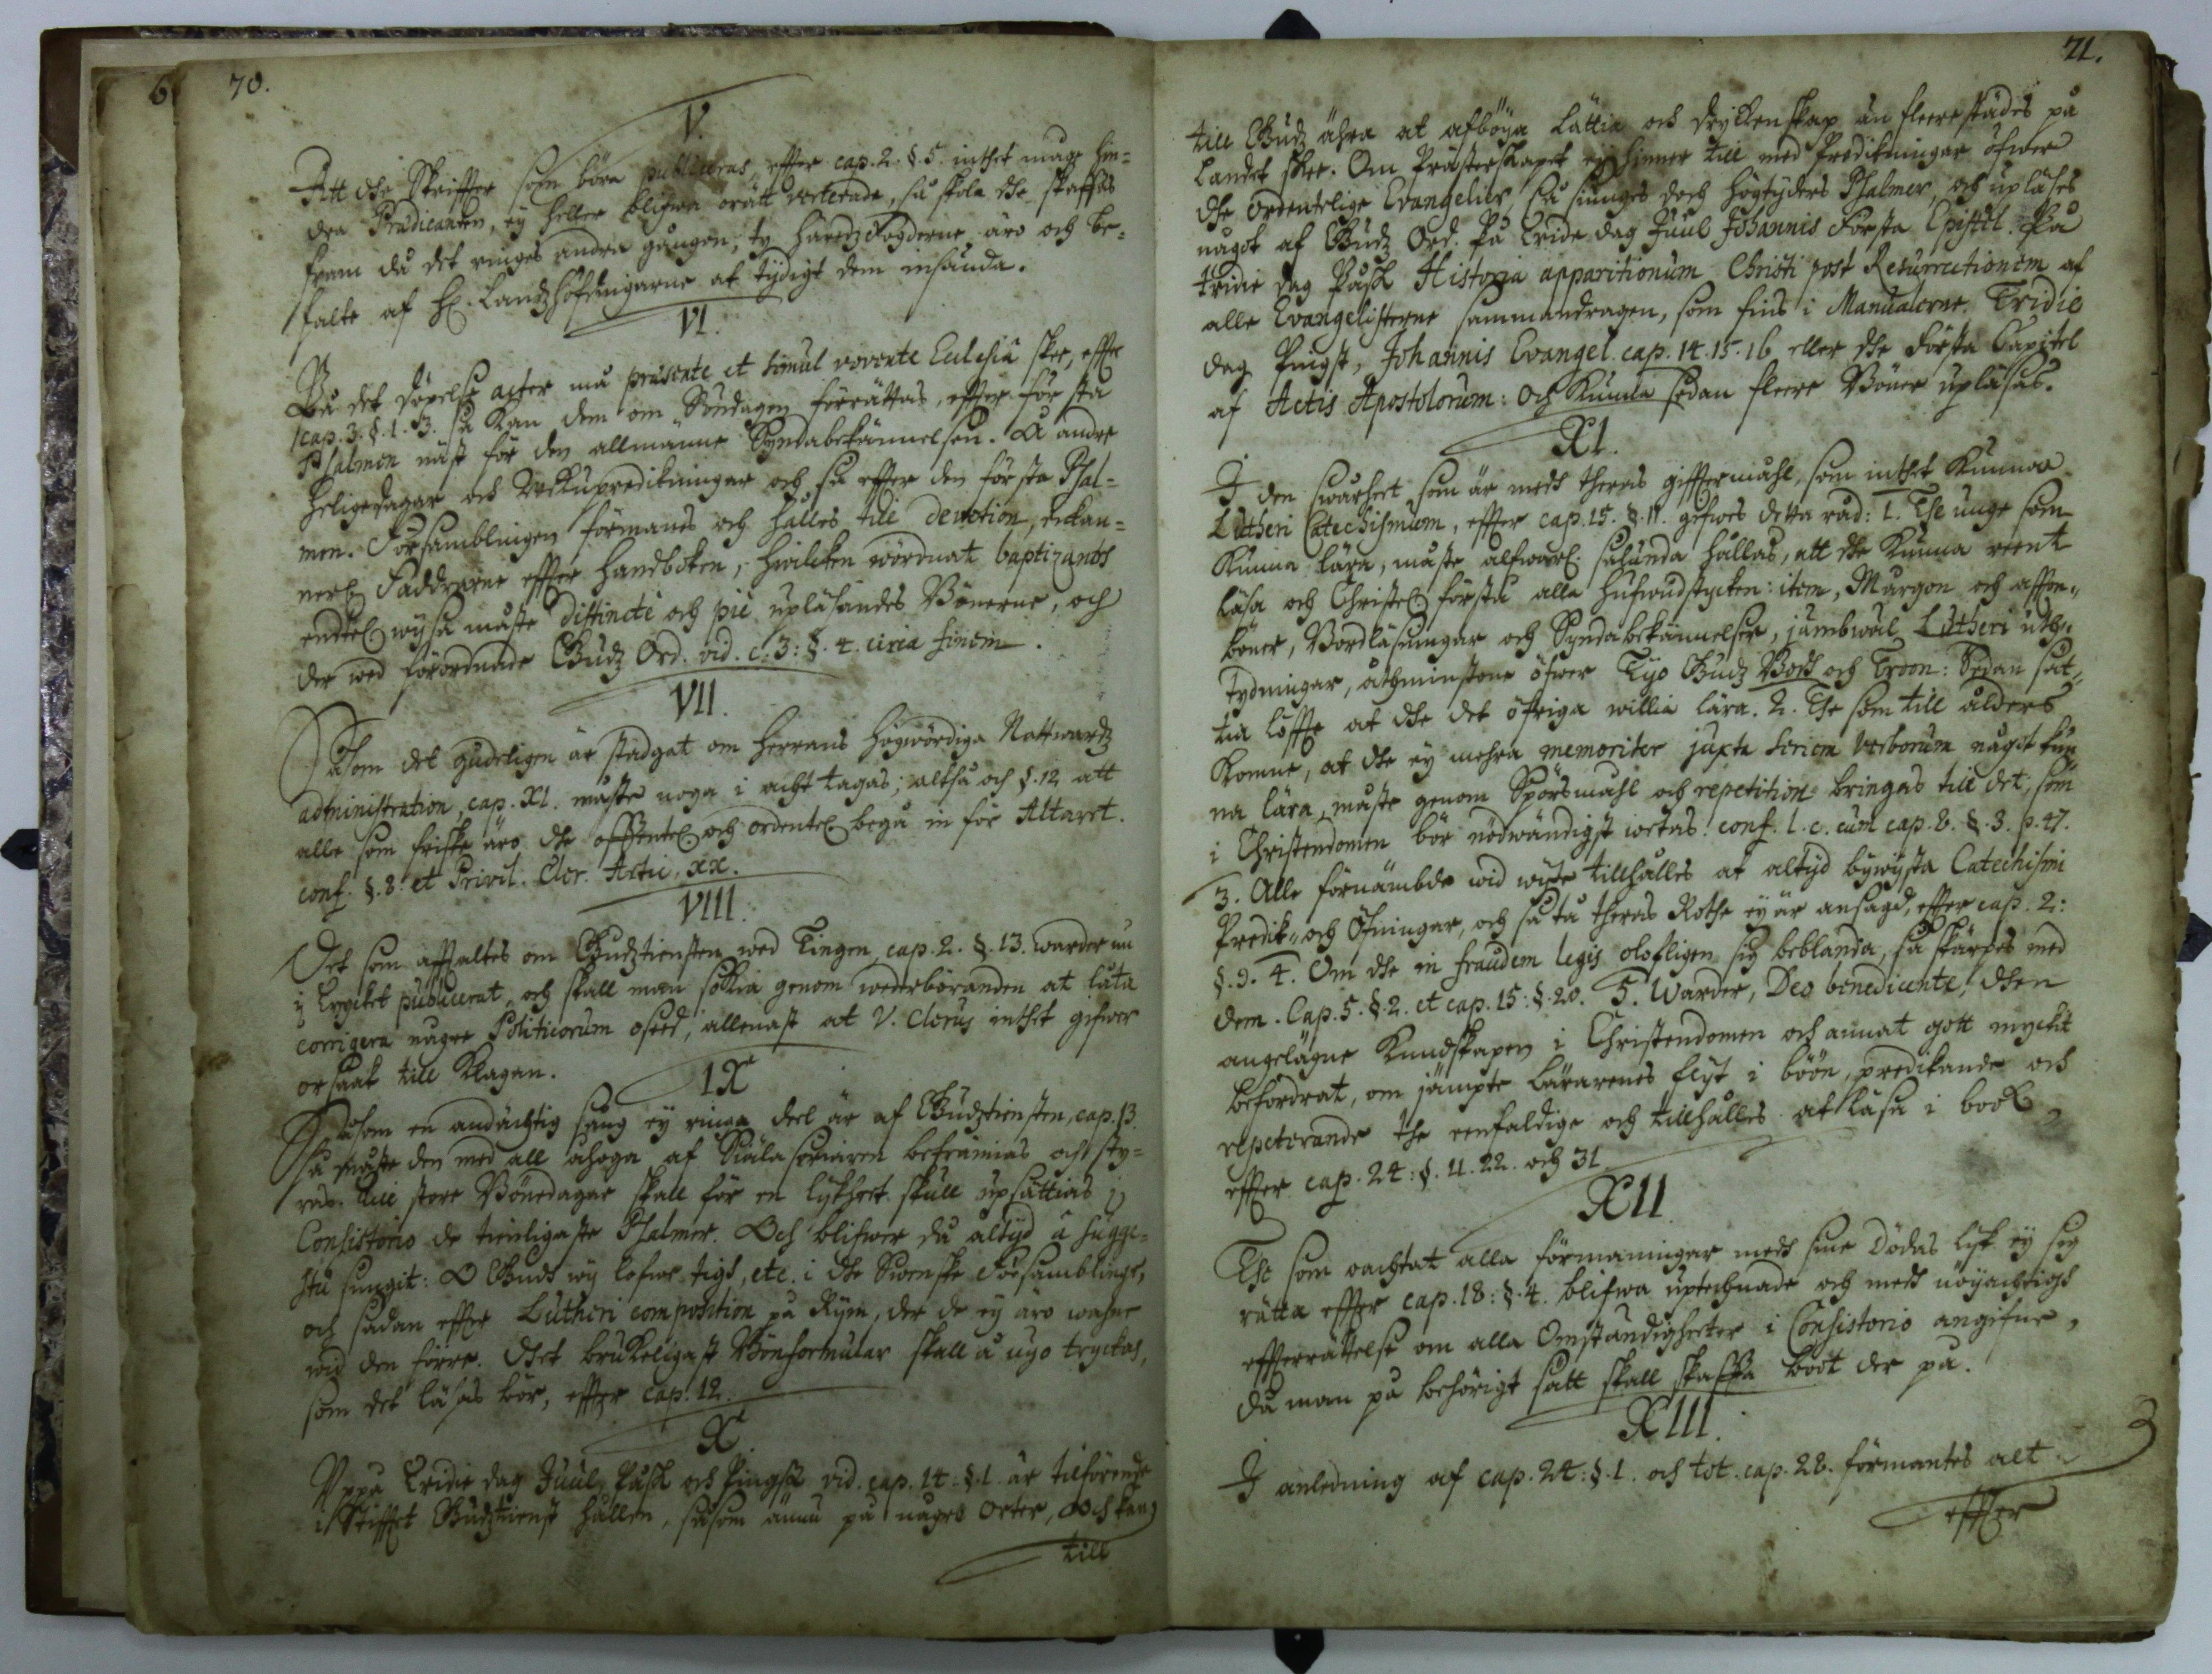 70.
V.
Att dhe Skriffter som böra publiceras, effter cap. 2. §. 5. inthet måge hin=
dra Prædicanten, ey heller blifwa orätt verterade, så skola dhe skaffas
fram då det ringes andra gången, ty HäredzFogderne äro och be=
falte af H. Landzhöfdingarne at tydigt dem insända.
VI.
På det Döpelse acter må præsente et simul vovente Ecclesiâ skee, effter
cap. 3. §. 1. 3. så kan dem om Söndagen förrättas, effter första
Psalmen näst för den allmänne Syndabekännelsen. Å andre
Heligedagar och Weckupredikningar och så effter den första Psal=
men. Församblingen förmanes och hålles till devotion, enkan=
nerl. Faddrarne effter Handboken, hwilcken wördnat baptizantes
endtel. wysa måste distinctè och piè upläsandes Bönerne, och
der wed förordnade Gudz Ord. vid. c. 3: §. 4. circa finem.
VII.
Såsom det gudeligen är stadgat om Herrans Högwördiga Nattwardz
administration, cap. XI. måste noga i acht tagas; altså och §. 12 att
alle som friske äro dhe offentel. och ordentel. begå in för Altaret.
conf. §. 8. et Privil. Cler. Artic. XX.
VIII.
Det som affaltes om Gudztiensten wed Tingen, cap. 2. §. 13. warder nu
i Trycket publicerat, och skall man sökia genom wederböranden at låta
corrigera någre Politicorum oseed, allenast at V. Clerus inthet gifwer
orsaak till Klagan.
IX
Såsom en andächtig sång ey ringa deel är af Gudztiensten, cap. 13.
så måste den med all ahoga af Siälasöriaren befrämias och sty=
ras. Till store Bönedagar skall för en lykheet skull upsättias i
Consistorio de tienligaste Psalmer. Och blifwer då altyd â sugge=
stu sungit: O Gudh wij lofwe tigh, etc. i dhe Swenske Församblingr,
och sådan effter Lutheri composition på Rijm, der de ey äro wahne
wid den förre. Dhet brukeligast Bönformular skall å nyo tryckas,
som det läsas bör, effter cap. 12.
X
Uppå Tridie dag Juul, Påsk och Pingst vid. cap. 14. §. 1. är tilförende
i Stifftet Gudztienst hållen, såsom ännu på någre Orter, och kan
till
71.
till Gudz ähra at afböya Lättia och dryckenskap än fleerestädes på
Landet skee. Om Prästerskapet ey hinner till med Predikningar öfwer
dhe ordentelige Evangelier, så siunges doch högtyders Psalmer, och upläses
något af Gudz Ord. På Tridie dag Juul Johannis Första Epistel. På
tridie dag Påsk Historia apparitionum Christi post Resurrectionem af
alle Evangelisterne sammandragen, som fins i Manualerne. Tridie
dag Pingst, Johannis Evangel. cap. 14. 15. 16. eller dhe Första Capitel
af Actis Apostolorum: Och kunna sedan fleere Böner upläsas.
XI.
I den swårheet som är medh theras gifftermåhl, som inthet kunna
Lutheri Catechismum, effter cap. 15. §. 11. gifwes detta råd: 1. The unge som
kunna lära, måste alfwarl. sålunda hållas, att dhe kunna reent
läsa och Christel. förstå alla hufwudstycken: item, Morgon och affton„
böner, Bordläsningar och Syndabekännelser, jämbwäl Lutheri uth„
tydningar, åthminstone öfwer Tijo Gudz Bodh och Troon: Sedan sät„
tia löffte at dhe det öfriga willia lära. 2. The som till ålders
komne, at dhe ey mehra memoriter juxta seriem verborum något kun
na lära, måste genom Spörsmåhl och repetition bringas till det, som
i Christendomen bör nödwändigst wetas. conf. l. c. cum cap. 8. §. 3. p. 47.
3. Alle förnämbde wid wijte tillhålles at altyd bywysta Catechismi
Predik„ och Öfningar, och så tå theras Rothe ey är ansagd, effter cap. 2:
§. 9. 4. Om dhe in fraudem legis olofligen sig beblanda, så skärpes med
dem. Cap. 5. §. 2. et cap. 15: §. 20. 5. Warder, Deo benedicente, dhen
angelägne Kundskapen i Christendomen och annat gott myckit
befordrat, om jämpte Lärarenes flyt i böön, predikande och
repeterande the eenfaldige och tillhålles at läsa i book
effter cap. 24: §. 11. 22. och 31.
XII.
The som oachtat alla förmaningar medh sine Dödas lijk ey sig
rätta effter cap. 18: §. 4. blifwa uptecknade och medh nöyachtigh
effterrättelse om alla Omständigheeter i Consistorio angifne,
då man på behörigt sätt skall skaffa boot der på.
XIII.
I anledning af cap. 24: §. 1. och tot. cap. 28. förmantes alt
effter